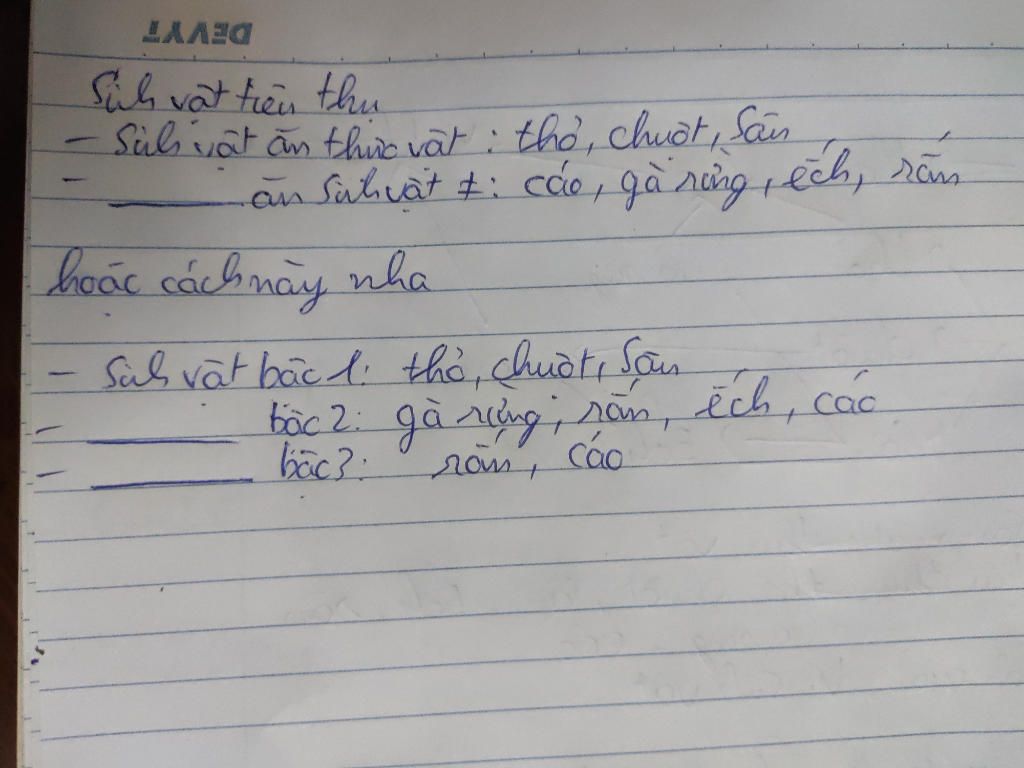 DEVYT
Sinh vật tiêu thụ
- Sinh vật ăn thực vật : thỏ, chuột, Sâu
- _____ ăn Sinh vật ≠ : cáo, gà rừng, ếch, rắn
hoặc cách này nha
- Sinh vật bậc 1: thỏ, chuột, Sâu
- _____ bậc 2: gà rừng, rắn, ếch, cáo
- _____ bậc 3: rắn, cáo